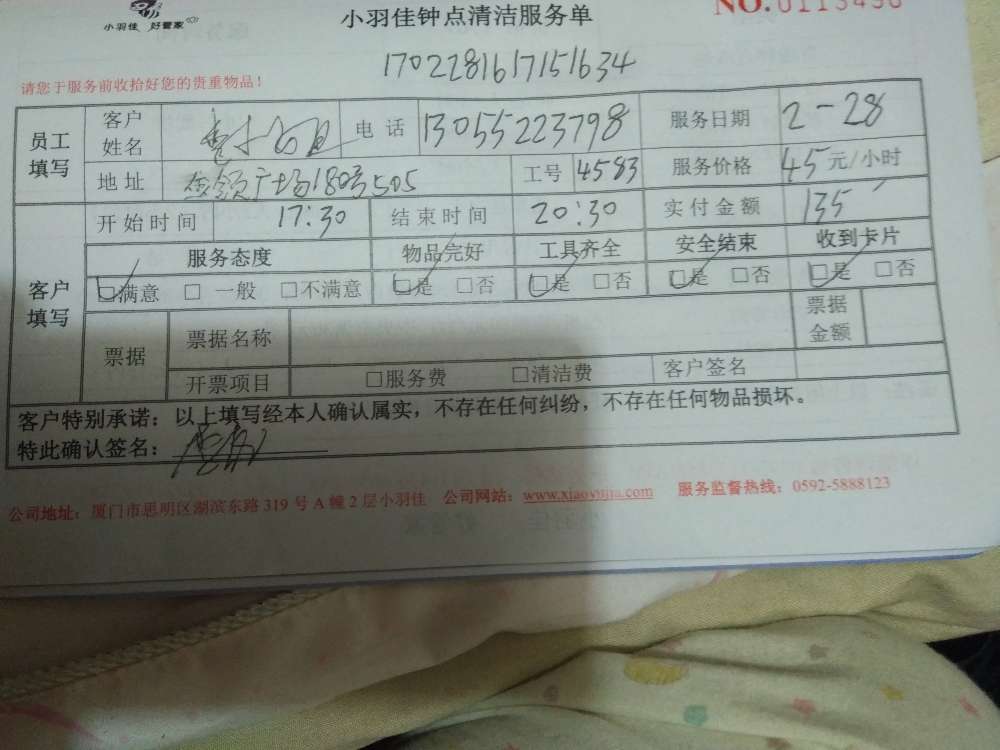 小羽佳 好管家
小羽佳钟点清洁服务单
NO.0113496
1702281617151634
请您于服务前收拾好您的贵重物品！
员工填写 客户姓名 电话 13055223798 服务日期 2-28
地址 金领广场180号505 工号 4583 服务价格 45元/小时
客户填写 开始时间 17:30 结束时间 20:30 实付金额 135
服务态度 物品完好 工具齐全 安全结束 收到卡片
☑满意 □一般 □不满意 ☑是 □否 ☑是 □否 ☑是 □否 ☑是 □否
票据 票据名称 票据金额
开票项目 □服务费 □清洁费 客户签名
客户特别承诺：以上填写经本人确认属实，不存在任何纠纷，不存在任何物品损坏。
特此确认签名：
公司地址：厦门市思明区湖滨东路319号A幢2层小羽佳 公司网站：www.xiaoyujia.com 服务监督热线：0592-5888123